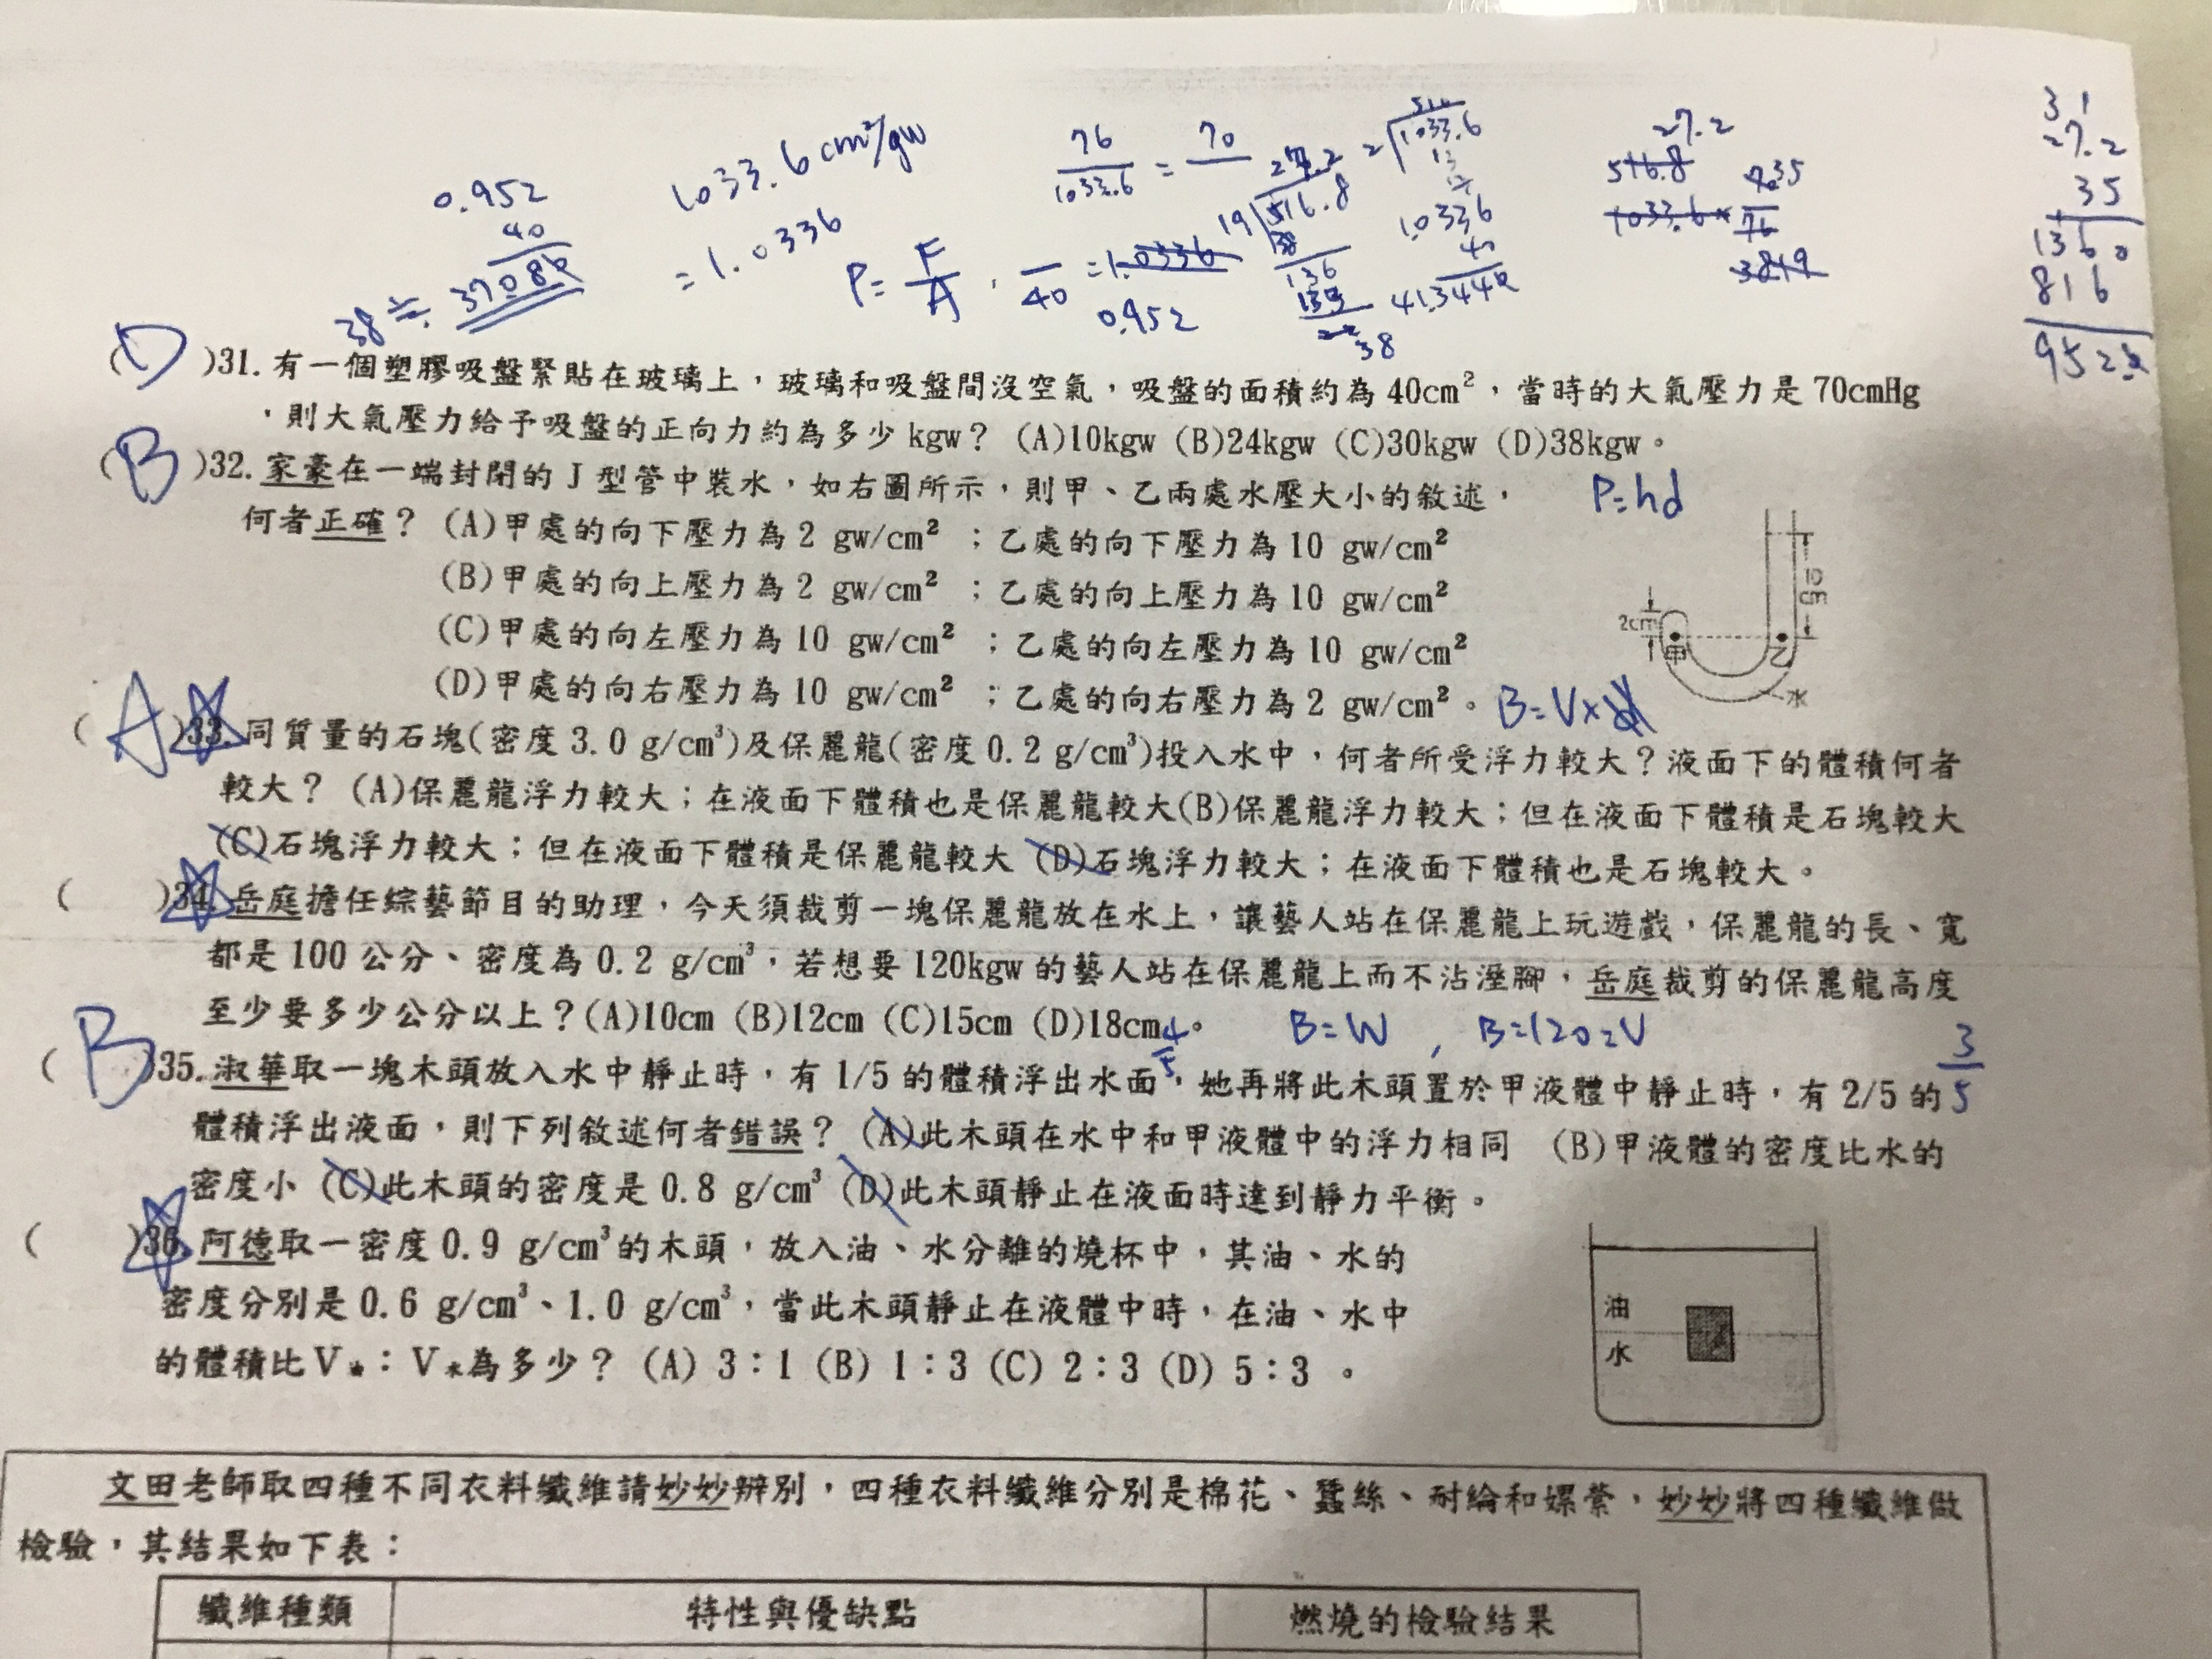 0.952
40
38≒37.080
1033.6 cm²/gw
=1.0336
P=F/A
76/1033.6=70/
/40=1.0336
0.952
27.2
19 516.8
136
133
38
2 1033.6
1.0336
40
41.3440
27.2
516.8 35
1033.6× 76
31
27.2
35
1360
816
9520
(D)31.有一個塑膠吸盤緊貼在玻璃上，玻璃和吸盤間沒空氣，吸盤的面積約為40cm²，當時的大氣壓力是70cmHg
，則大氣壓力給予吸盤的正向力約為多少kgw？ (A)10kgw (B)24kgw (C)30kgw (D)38kgw。
(B)32.家豪在一端封閉的J型管中裝水，如右圖所示，則甲、乙兩處水壓大小的敘述，
何者正確？ (A)甲處的向下壓力為2 gw/cm² ；乙處的向下壓力為10 gw/cm²
(B)甲處的向上壓力為2 gw/cm² ；乙處的向上壓力為10 gw/cm²
(C)甲處的向左壓力為10 gw/cm² ；乙處的向左壓力為10 gw/cm²
(D)甲處的向右壓力為10 gw/cm² ；乙處的向右壓力為2 gw/cm²。
P=hd
10
cm
2cm
甲
乙
水
B=V×d
(A)33.同質量的石塊(密度3.0 g/cm³)及保麗龍(密度0.2 g/cm³)投入水中，何者所受浮力較大？液面下的體積何者
較大？ (A)保麗龍浮力較大；在液面下體積也是保麗龍較大(B)保麗龍浮力較大；但在液面下體積是石塊較大
(C)石塊浮力較大；但在液面下體積是保麗龍較大 (D)石塊浮力較大；在液面下體積也是石塊較大。
( )34.岳庭擔任綜藝節目的助理，今天須裁剪一塊保麗龍放在水上，讓藝人站在保麗龍上玩遊戲，保麗龍的長、寬
都是100公分、密度為0.2 g/cm³，若想要120kgw的藝人站在保麗龍上而不沾溼腳，岳庭裁剪的保麗龍高度
至少要多少公分以上？(A)10cm (B)12cm (C)15cm (D)18cm。
B=W , B=120=V
4/5
3/5
(B)35.淑華取一塊木頭放入水中靜止時，有1/5的體積浮出水面，她再將此木頭置於甲液體中靜止時，有2/5的
體積浮出液面，則下列敘述何者錯誤？ (A)此木頭在水中和甲液體中的浮力相同 (B)甲液體的密度比水的
密度小 (C)此木頭的密度是0.8 g/cm³ (D)此木頭靜止在液面時達到靜力平衡。
( )36.阿德取一密度0.9 g/cm³的木頭，放入油、水分離的燒杯中，其油、水的
密度分別是0.6 g/cm³、1.0 g/cm³，當此木頭靜止在液體中時，在油、水中
的體積比V油：V水為多少？ (A) 3：1 (B) 1：3 (C) 2：3 (D) 5：3 。
油
水
文田老師取四種不同衣料纖維請妙妙辨別，四種衣料纖維分別是棉花、蠶絲、耐綸和嫘縈，妙妙將四種纖維做
檢驗，其結果如下表：
纖維種類 特性與優缺點 燃燒的檢驗結果